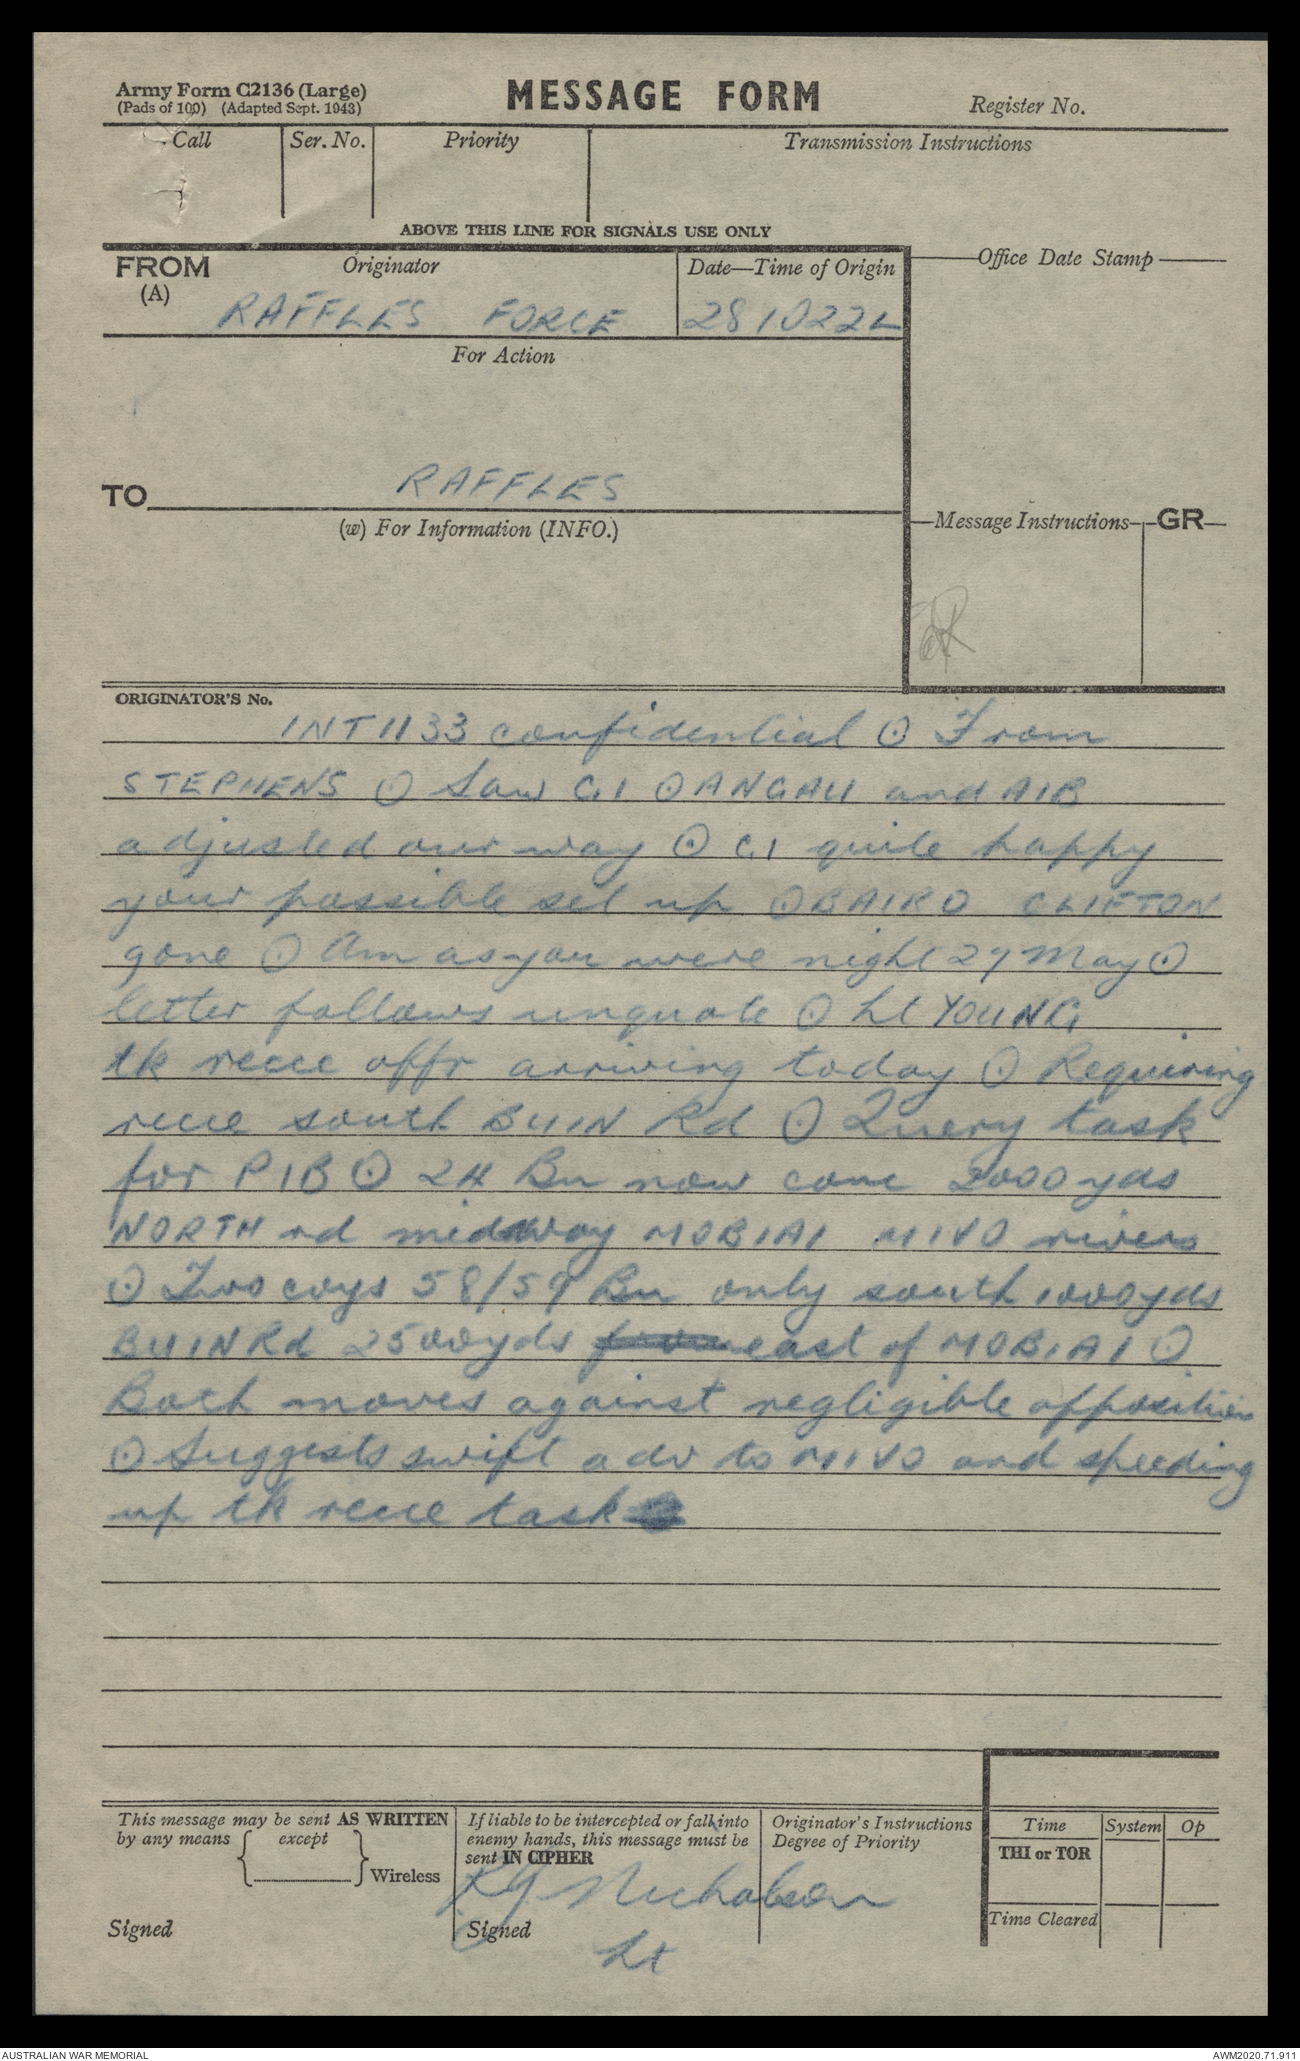 Army Form C2136 (Large)
(Pads of 100) (Adapted Sept. 1943)
MESSAGE FORM
Register No.
Call
Ser. No.
Priority
Transmission Instructions
ABOVE THIS LINE FOR SIGNALS USE ONLY
FROM
(A)
Originator
Date—Time of Origin
Office Date Stamp
RAFFLES FORCE
281022L
For Action
TO RAFFLES
(w) For Information (INFO.)
Message Instructions
GR
ORIGINATOR'S No.
INT1133 confidential ⊙ From
STEPHENS ⊙ Saw G1 ⊙ ANGAU and AIB
adjusted our way ⊙ G1 quite happy
your possible set up ⊙ BAIRD CLIFTON
gone ⊙ Am as you were night 27 May ⊙
letter follows unquote ⊙ Lt YOUNG
tk recce offr arriving today ⊙ Requiring
recce south BUIN Rd ⊙ Query task
for PIB ⊙ 24 Bn now conc 2000 yds
NORTH rd midway MOBIAI MIVO rivers
⊙ Two coys 58/59 Bn only south 1000yds
BUIN Rd 2500yds from east of MOBIAI ⊙
Both moves against negligible opposition
⊙ Suggests swift adv to MIVO and speeding
up tk recce task
This message may be sent AS WRITTEN
by any means { except } Wireless
Signed
If liable to be intercepted or fall into
enemy hands, this message must be
sent IN CIPHER
Signed
Nicholson
Lt
Originator's Instructions
Degree of Priority
Time
System
Op
THI or TOR
Time Cleared
AUSTRALIAN WAR MEMORIAL
AWM2020.71.911